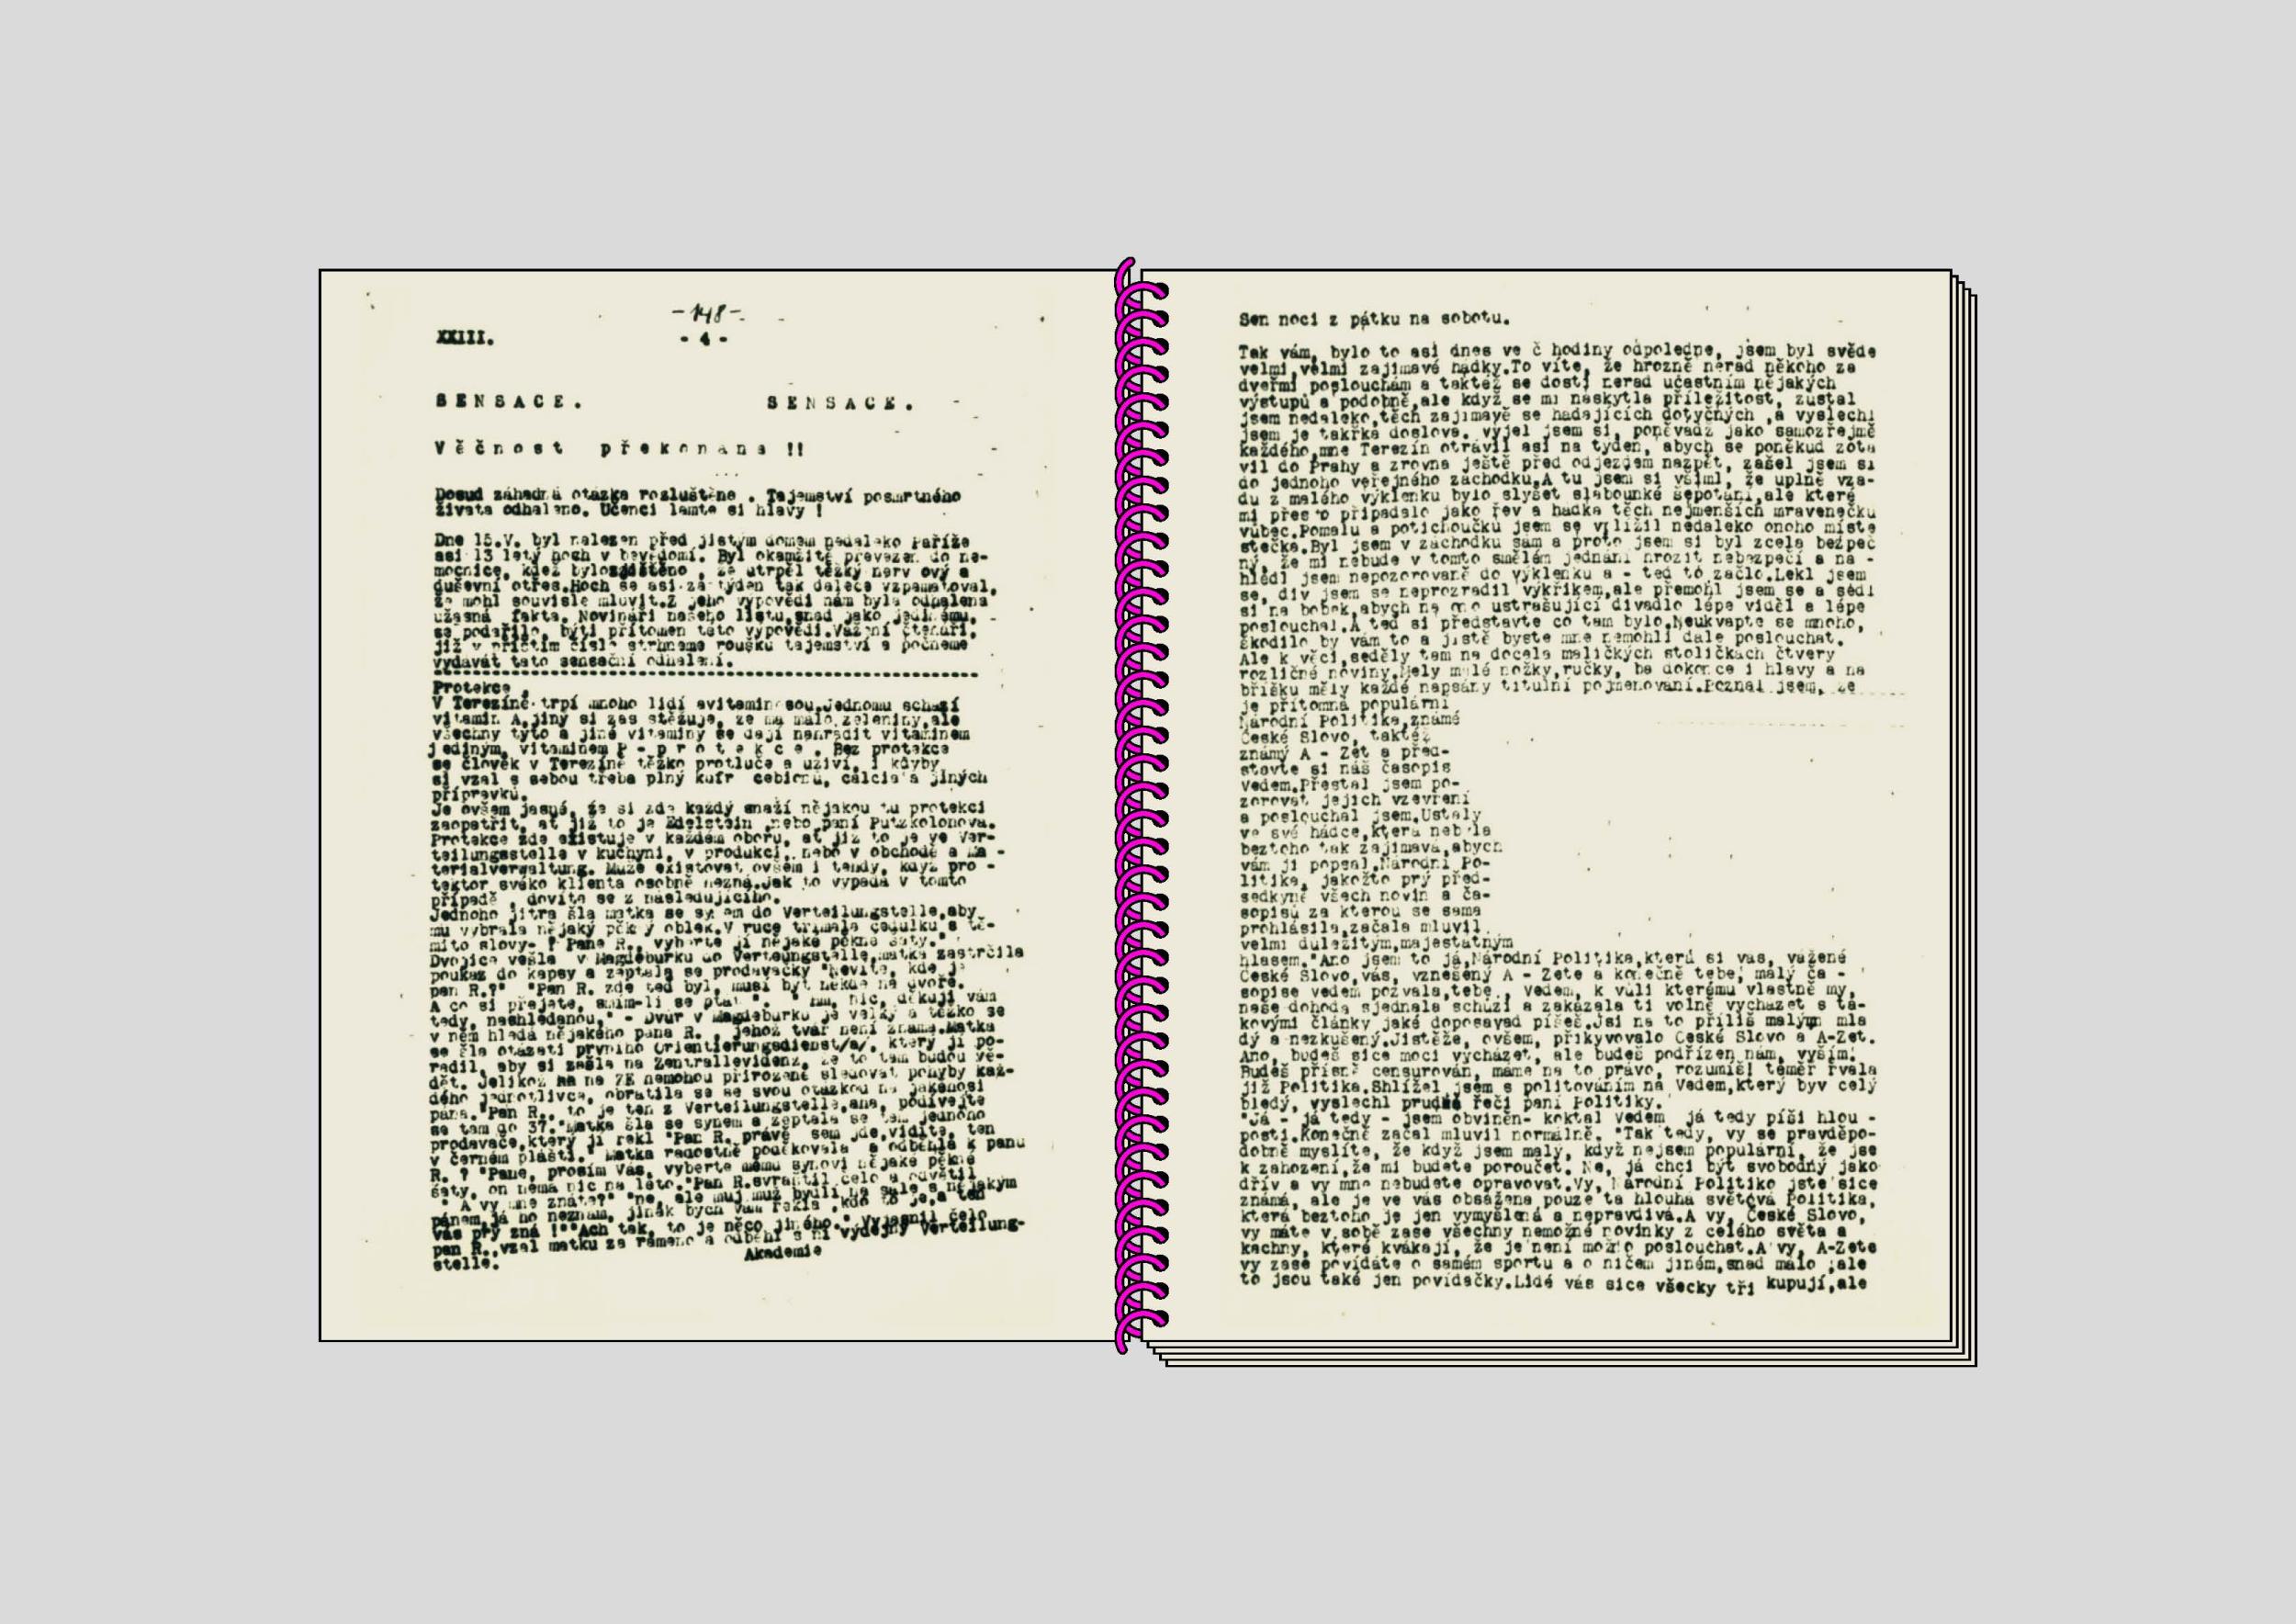 -148-
XXIII.
- 4 -
SENSACE. SENSACE.
Věčnost překonana !!
Dosud záhadná otázka rozluštěna . Tajemství posmrtného
života odhaleno. Učenci lamte si hlavy !
Dne 15.V. byl nalezen před jistým domem nedaleko Paříže
asi 13 letý hoch v bevědomí. Byl okamžitě převezen do ne-
mocnice, kdež bylo zjištěno , že utrpěl těžký nerv ový a
duševní otřes.Hoch se asi za týden tak dalece vzpamatoval,
že mohl souvisle mluvit.Z jeho výpovědi nám byla odhalena
užasná fakta. Novináři našeho listu,snad jako jedinému,
se podařilo, býti přítomen této výpovědi.Vážení čtenáři,
již v příštím čísle strhneme roušku tajemství a počneme
vydávat tato sensační odhalení.
Protekce .
V Terezíně trpí mnoho lidí avitaminosou.Jednomu schází
vitamin A,jiný si zas stěžuje, že má málo zeleniny,ale
všechny tyto a jiné vitaminy se dají nahradit vitaminem
jediným, vitaminem P - p r o t e k c e . Bez protekce
se člověk v Terezíně těžko protluče a uživí, i kdyby
si vzal s sebou třeba plný kufr cebionu, calcia a jiných
přípravků.
Je ovšem jasné, že si zde každý snaží nějakou tu protekci
zaopatřit, ať již to je Edelstein ,nebo paní Putzkolonova.
Protekce zde existuje v každém oboru, ať již to je ve Ver-
teilungsstelle v kuchyni, v produkci, nebo v obchodě a Ma -
terialverwaltung. Může existovat ovšem i tehdy, když pro -
tektor svéko klienta osobně nezná.Jak to vypadá v tomto
případě , dovíte se z následujícího.
Jednoho jitra šla matka se synem do Verteilungstelle,aby
mu vybrala nějaký pěkný oblek.V ruce třímala cedulku s tě-
mito slovy- ? Pane R., vyberte jí nějaké pěkné šaty."
Dvojice vešla v Magdeburku do Verteungstelle,matka zastrčila
poukaz do kapsy a zeptala se prodavačky "Nevíte, kde je
pan R.?" "Pan R. zde teď byl, musí být někde na dvoře.
A co si přejete, smím-li se ptát ". " Hm, nic, děkuji vám
tedy, nashledanou." - Dvůr v Magdeburku je velký a těžko se
v něm hledá nějakého pana R. , jehož tvář není známa.Matka
se šla otázati prvního Orientierungsdienst/a/, který jí po-
radil, aby si zašla na Zentrallevidenz, že to tam budou vě-
dět. Jelikož na na ZE nemohou přirozeně sledovat pohyby kaž-
dého jednotlivce, obrátila se se svou otázkou na jakéhosi
pána."Pan R., to je ten z Verteilungstelle,ana, podívejte
se tam do 37."Matka šla se synem a zeptala se tam jednoho
prodavače,který jí řekl "Pan R. právě sem jde,vidíte, ten
v černém plášti." Matka radostně poděkovala a odběhla k panu
R. ? "Pane, prosím Vás, vyberte mému synovi nějaké pěkné
šaty, on nemá nic na léto."Pan R.svraštil čelo a odvětil
" A vy mne znáte?" "ne, ale můj muž bydlí na sále s nějakým
pánem,já ho neznám, jinak bych vám řekla ,kdo to je,a ten
vás prý zná !""Ach tak, to je něco jiného." Vyjasnil čelo
pan R.,vzal matku za rámeno a odběhl s ní výdejny Verteilung-
stelle.
Akademie
Sen noci z pátku na sobotu.
Tak vám, bylo to asi dnes ve č hodiny odpoledne, jsem byl svěde
velmi,velmi zajímavé hádky.To víte, že hrozně nerad někoho za
dveřmi poslouchám a taktéž se dosti nerad učastním nějakých
výstupů a podobně,ale když se mi naskytla příležitost, zůstal
jsem nedaleko,těch zajímavě se hádajících dotyčných ,a vyslechl
jsem je takřka doslova. Vyjel jsem si, poněvadž jako samozřejmě
každého,mne Terezín otrávil asi na týden, abych se poněkud zota
vil do Prahy a zrovna ještě před odjezdem nazpět, zašel jsem si
do jednoho veřejného záchodku.A tu jsem si všiml, že uplně vza-
du z malého výklenku bylo slyšet slabounké šepotání,ale které
mi přesto připadalo jako řev a hádka těch nejmenších mravenečku
vůbec.Pomalu a potichoučku jsem se vplížil nedaleko onoho míste
stečka.Byl jsem v záchodku sám a proto jsem si byl zcela bezpeč
ný, že mi nebude v tomto smělém jednání hrozit nebezpečí a na -
hlédl jsem nepozorovaně do výklenku a - teď to začlo.Lekl jsem
se, div jsem se neprozradil výkřikem,ale přemohl jsem se a sedl
si na bobek,abych na ono ustrašující divadlo lépe viděl a lépe
poslouchal.A teď si představte co tam bylo.Neukvapte se mnoho,
škodilo by vám to a jistě byste mne nemohli dále poslouchat.
Ale k věci,seděly tam na docela maličkých stoličkách čtvery
rozličné noviny.Měly malé nožky,ručky, ba dokonce i hlavy a na
bříšku měly každé napsány titulní pojmenování.Poznal jsem, že
je přítomna populární
Národní Politika,známé
České Slovo, taktéž
známý A - Zet a před-
stavte si náš časopis
Vedem.Přestal jsem po-
zorovat jejich vzevření
a poslouchal jsem.Ustaly
ve své hádce,která nebyla
beztoho tak zajímavá,abych
vám ji popsal.Národní Po-
litika, jakožto prý před-
sedkyně všech novin a ča-
sopisů za kterou se sama
prohlásila,začala mluvil
velmi duležitým,majestátným
hlasem."Ano jsem to já,Národní Politika,která si vás, vážené
České Slovo,vás, vznešený A - Zete a konečně tebe, malý ča -
sopise vedem pozvala,tebe , Vedem, k vůli kterému vlastně my,
naše dohoda sjednala schůzi a zakázala ti volně vycházet s ta-
kovými články jaké doposavad píšeš.Jsi na to příliš malým mla
dý a nezkušený.Jistěže, ovšem, přikyvovalo České Slovo a A-Zet.
Ano, budeš sice moci vycházet, ale budeš podřízen nám, vyším.
Budeš přísně censurován, máme na to právo, rozumíš! téměř řvala
již Politika.Shlížel jsem s politováním na Vedem,který byv celý
bledý, vyslechl prudké řeči paní Politiky.
"Já - já tedy - jsem obviněn- koktal Vedem já tedy píši hlou -
posti.Konečně začal mluvil normálně. "Tak tedy, vy se pravděpo-
dobně myslíte, že když jsem malý, když nejsem populární, že jse
k zahození,že mi budete poroučet. Ne, já chci být svobodný jako
dřív a vy mne nebudete opravovat.Vy, Národní Politiko jste sice
známá, ale je ve vás obsažena pouze ta hlouhá světová Politika,
která beztoho je jen vymyšlená a nepravdivá.A vy, České Slovo,
vy máte v sobě zase všechny nemožné novinky z celého světa a
kachny, které kvákají, že je není možno poslouchat.A vy, A-Zete
vy zase povídáte o samém sportu a o ničem jiném,snad málo ,ale
to jsou také jen povídačky.Lidé vás sice všecky tři kupují,ale